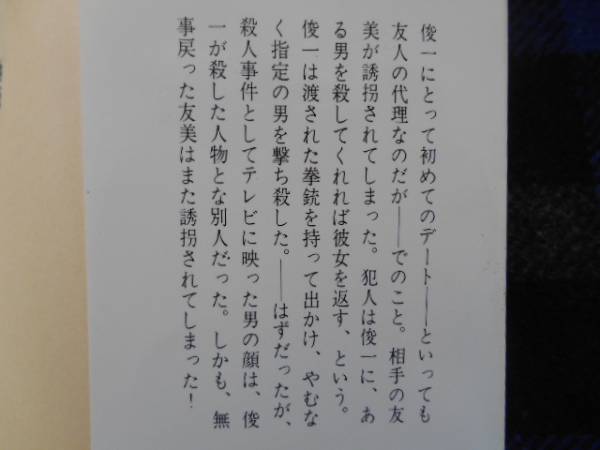 俊一にとって初めてのデート――といっても
友人の代理なのだが――でのこと。相手の友
美が誘拐されてしまった。犯人は俊一に、あ
る男を殺してくれれば彼女を返す、という。
俊一は渡された拳銃を持って出かけ、やむな
く指定の男を撃ち殺した。――はずだったが、
殺人事件としてテレビに映った男の顔は、俊
一が殺した人物とな別人だった。しかも、無
事戻った友美はまた誘拐されてしまった！